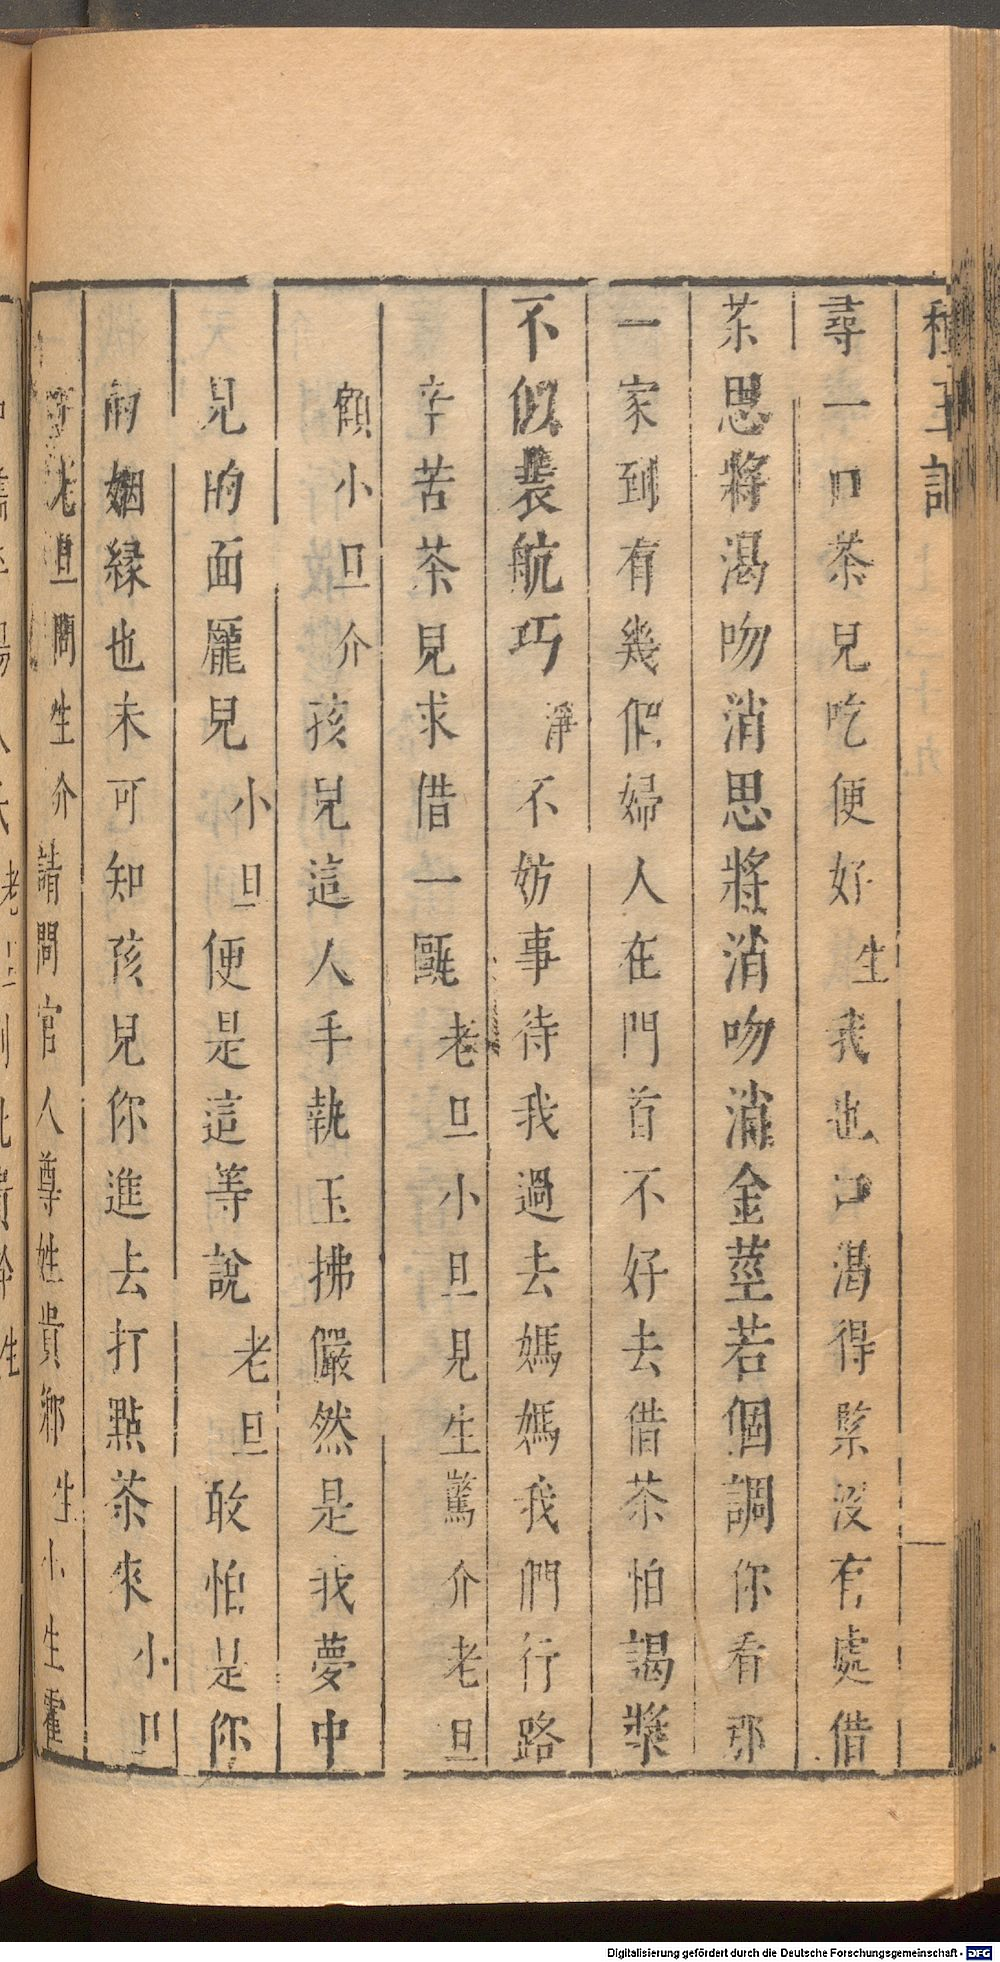 種玉記
尋一口茶兒吃便好生我也口渴得緊沒有處借
茶思將渴吻消思將消吻消金莖若個調你看那
一家到有幾個婦人在門首不好去借茶怕謁漿
不似裴航巧淨不妨事待我過去媽媽我們行路
辛苦茶見求借一甌老旦小旦見生驚介老旦
顧小旦介孩兒這人手執玉拂儼然是我夢中
見的面龐兒小旦便是這等說老旦敢怕是你
的姻緣也未可知孩兒你進去打點茶來小旦
下老旦問生介請問官人尊姓貴鄉生小生霍
Digitalisierung gefördert durch die Deutsche Forschungsgemeinschaft - DFG